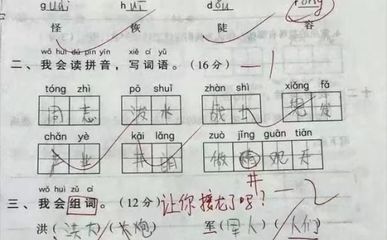 guài huǐ dǒu róng
怪 恢 陡 容
wǒ huì dú pīn yīn xiě cí yǔ
二、我会读拼音,写词语。(16分) —1
tóng zhì pō shuǐ zhàn shì xiǎng fǎ
同志 泼水 战士
chǎn yè kāi lǎng zuò jīng guān tiān
产业 开朗 做
井
wǒ huì zǔ cí
三、我会组词。(12分) 让你接龙了吗? —2
洪(洪 )( 炮) 军(军人)(人们)